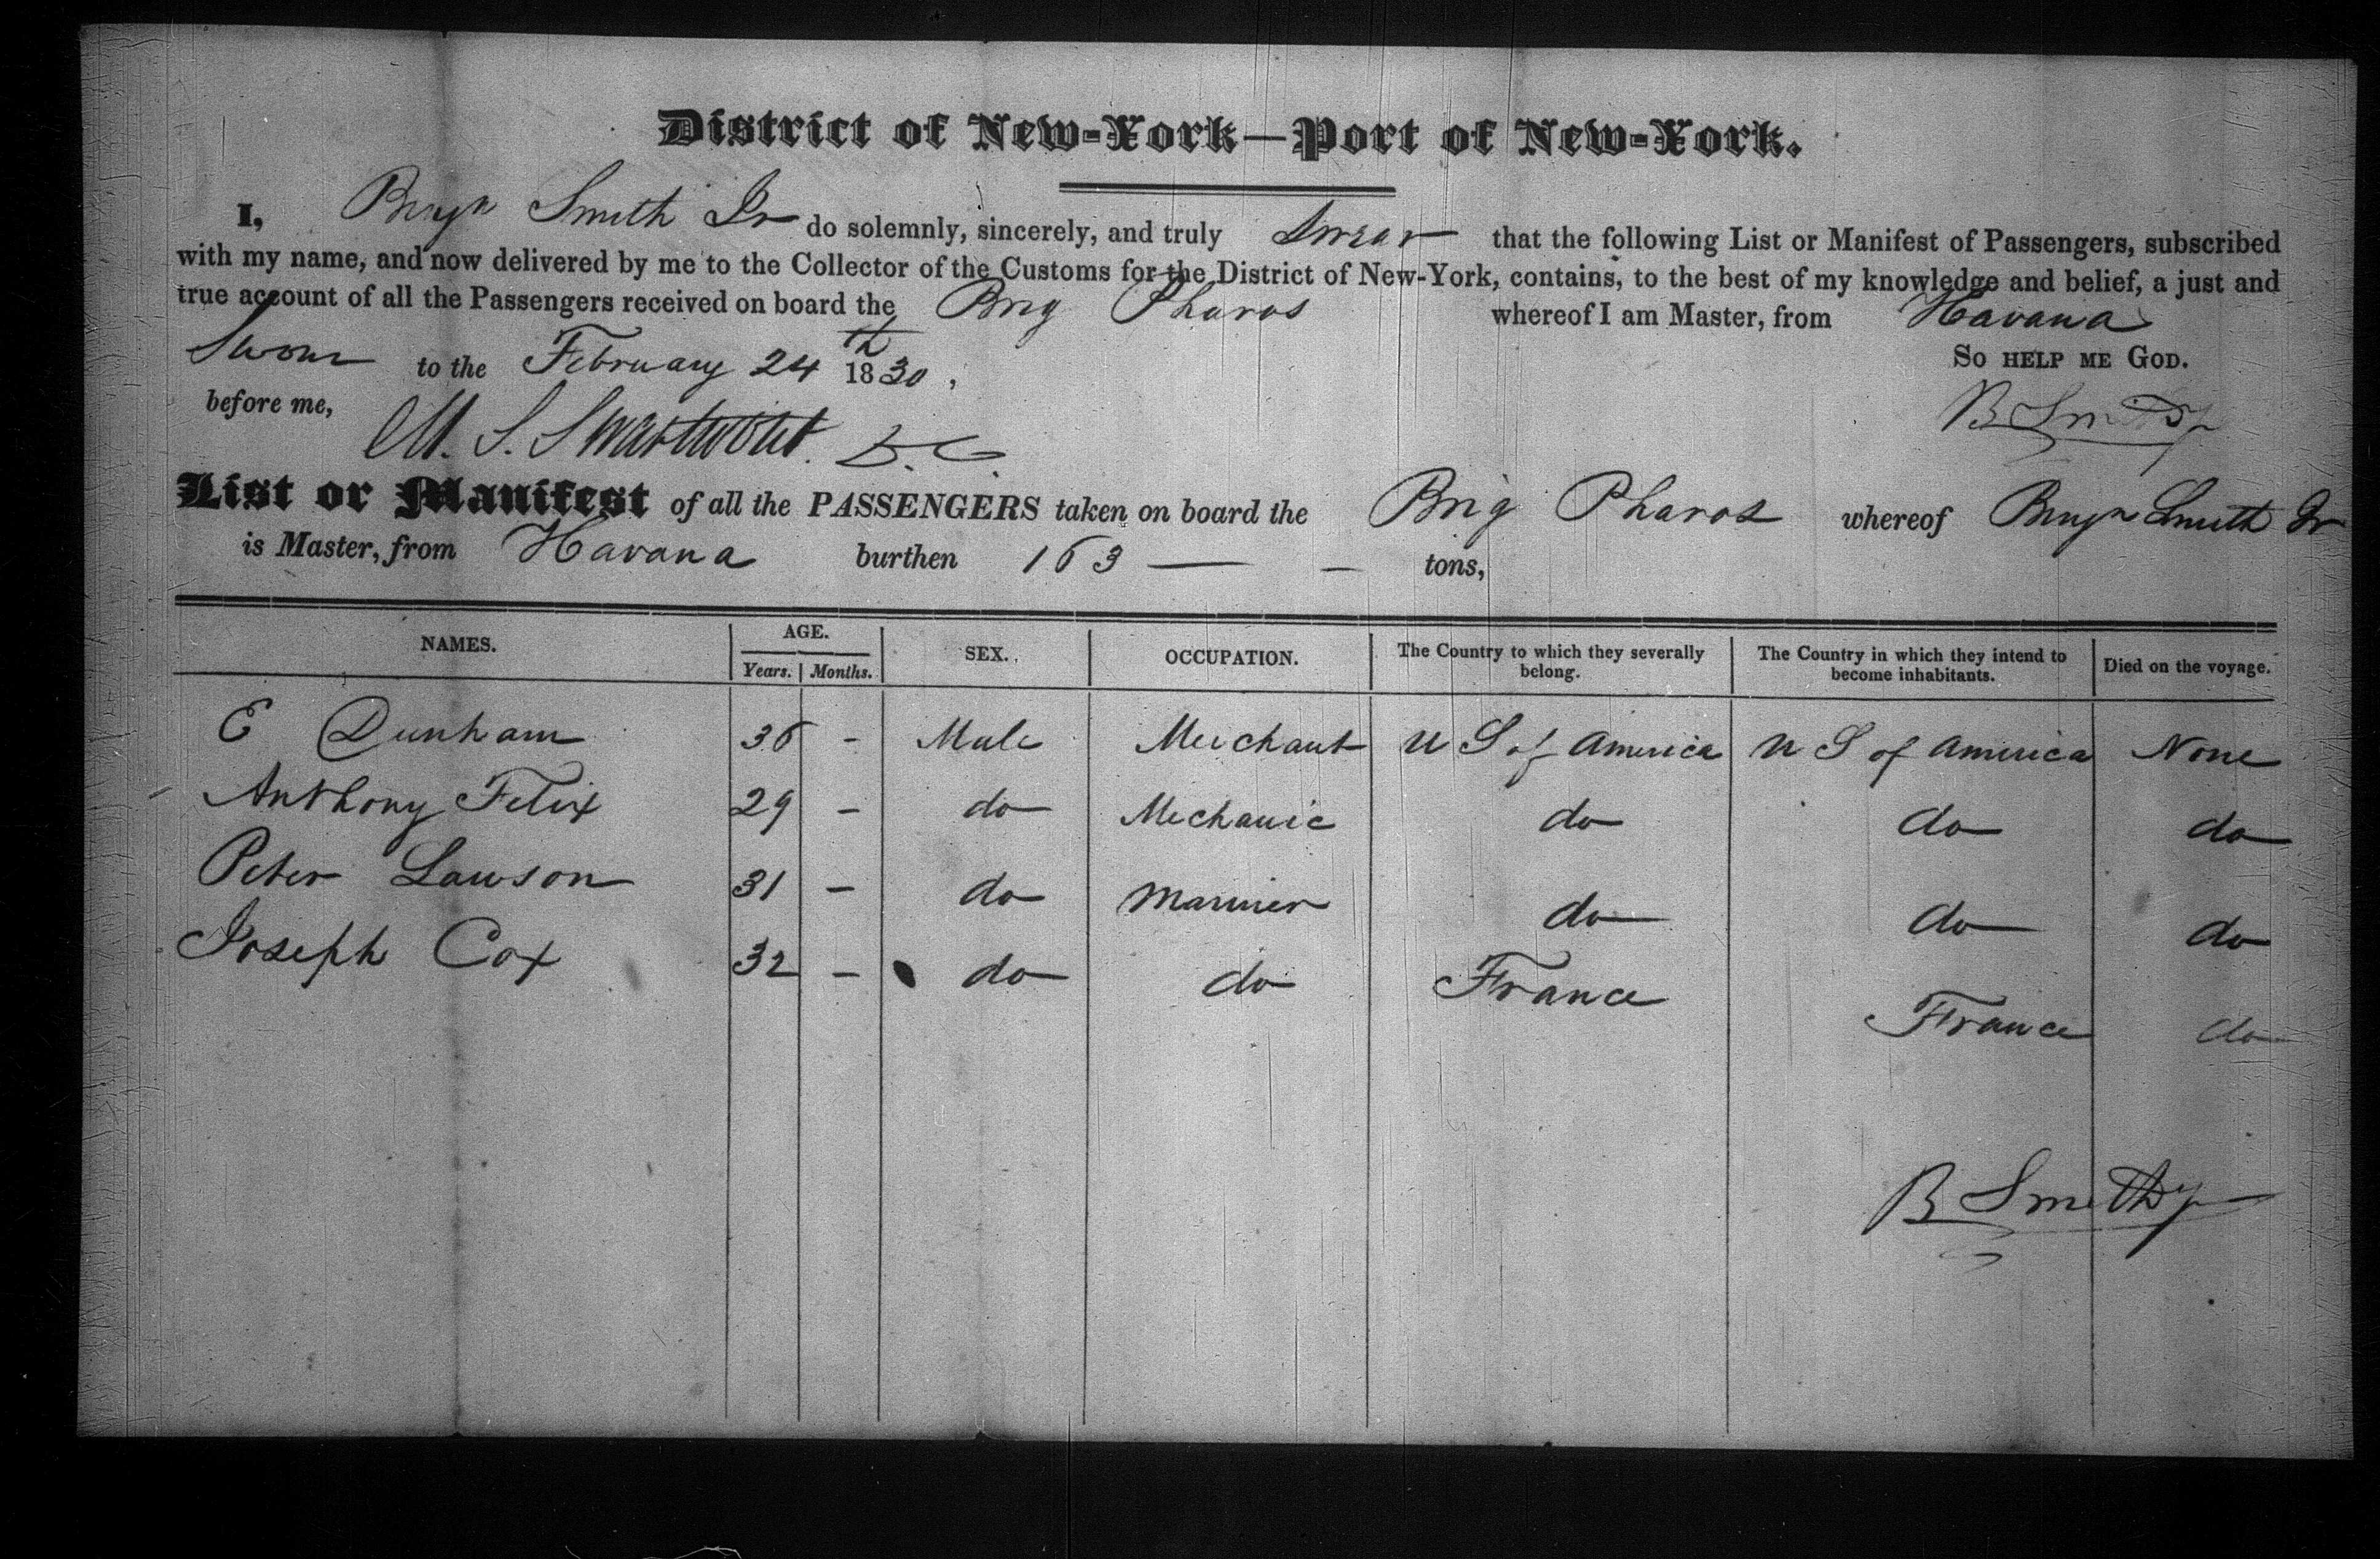 District of New-York—Port of New-York.
I, Benjn Smith Jr do solemnly, sincerely, and truly Swear that the following List or Manifest of Passengers, subscribed
with my name, and now delivered by me to the Collector of the Customs for the District of New-York, contains, to the best of my knowledge and belief, a just and
true account of all the Passengers received on board the Brig Pharos whereof I am Master, from Havana
Sworn to the February 24th 1830, So help me God.
before me, B Smith Jr
M. S. Swartwout. D.C.
List or Manifest of all the PASSENGERS taken on board the Brig Pharos whereof Benjn Smith Jr
is Master, from Havana burthen 163 — — tons,
NAMES. AGE. Years. Months. SEX. OCCUPATION. The Country to which they severally belong. The Country in which they intend to become inhabitants. Died on the voyage.
E Dunham 36 - Male Merchant U S of America U S of America None
Anthony Felix 29 - do Mechanic do do do
Peter Lawson 31 - do Mariner do do do
Joseph Cox 32 - do do France France do
B Smith Jr